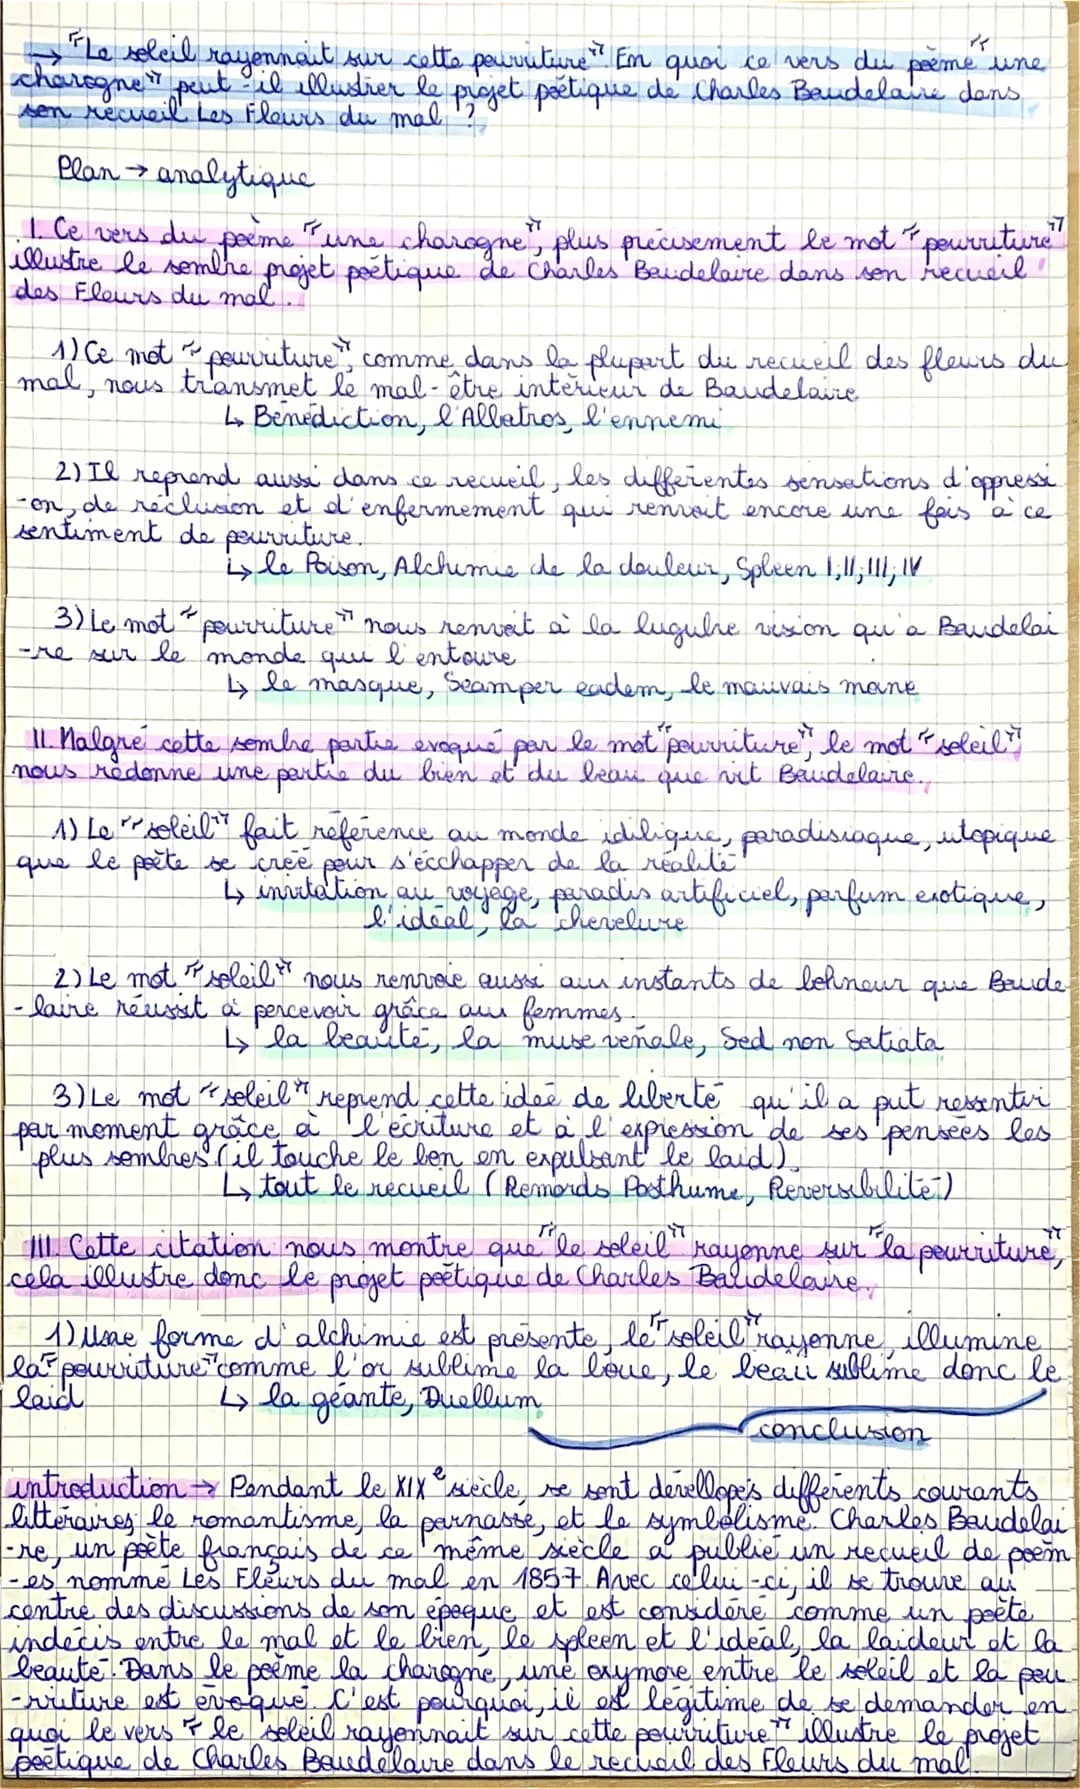 → "Le soleil rayonnait sur cette pourriture". En quoi ce vers du poème "une
charogne" peut-il illustrer le projet poétique de Charles Baudelaire dans
son recueil Les Fleurs du mal ?
Plan → analytique
I. Ce vers du poème "une charogne", plus précisement le mot "pourriture"
illustre le sombre projet poétique de Charles Baudelaire dans son recueil
des Fleurs du mal.
1) Ce mot "pourriture", comme dans la plupart du recueil des fleurs du
mal, nous transmet le mal-être intérieur de Baudelaire
↳ Bénédiction, l'Albatros, l'ennemi
2) Il reprend aussi dans ce recueil, les différentes sensations d'oppressi
-on, de réclusion et d'enfermement qui renvoit encore une fois à ce
sentiment de pourriture.
↳ le Poison, Alchimie de la douleur, Spleen I;II;III;IV
3) Le mot "pourriture" nous renvoit à la lugubre vision qu'a Baudelai
-re sur le monde qui l'entoure
↳ le masque, Seamper eadem, le mauvais moine
II. Malgré cette sombre partie évoqué par le mot "pourriture", le mot "soleil"
nous redonne une partie du bien et du beau que vit Baudelaire.
1) Le "soleil" fait référence au monde idilique, paradisiaque, utopique
que le poète se créé pour s'écchapper de la réalité
↳ invitation au voyage, paradis artificiel, parfum exotique,
l'idéal, la chevelure
2) Le mot "soleil" nous renvoie aussi aux instants de bohneur que Baude
-laire réussit à percevoir grâce aux femmes.
↳ la beauté, la muse vénale, Sed non Satiata
3) Le mot "soleil" reprend cette ideé de liberté qu'il a put ressentir
par moment grâce à l'écriture et à l'expression de ses pensées les
plus sombres (il touche le bon en expulsant le laid).
↳ tout le recueil (Remords Posthume, Réversibilité)
III. Cette citation nous montre que "le soleil" rayonne sur "la pourriture",
cela illustre donc le projet poétique de Charles Baudelaire.
1) Une forme d'alchimie est présente, le "soleil" rayonne, illumine
la "pourriture" comme l'or sublime la boue, le beau sublime donc le
laid ↳ la géante, Duellum
conclusion
introduction → Pendant le XIXe siècle, se sont dévellopés différents courants
littéraires; le romantisme, la parnasse, et le symbolisme. Charles Baudelai
-re, un poète français de ce même siècle a publié un recueil de poèm
-es nommé Les Fleurs du mal en 1857. Avec celui-ci, il se trouve au
centre des discussions de son époque et est considéré comme un poète
indécis entre le mal et le bien, le spleen et l'idéal, la laideur et la
beauté. Dans le poème la charogne, une oxymore entre le soleil et la pou
-rriture est évoqué. C'est pourquoi, il est légitime de se demander en
quoi le vers "le soleil rayonnait sur cette pourriture" illustre le projet
poétique de Charles Baudelaire dans le recueil des Fleurs du mal.